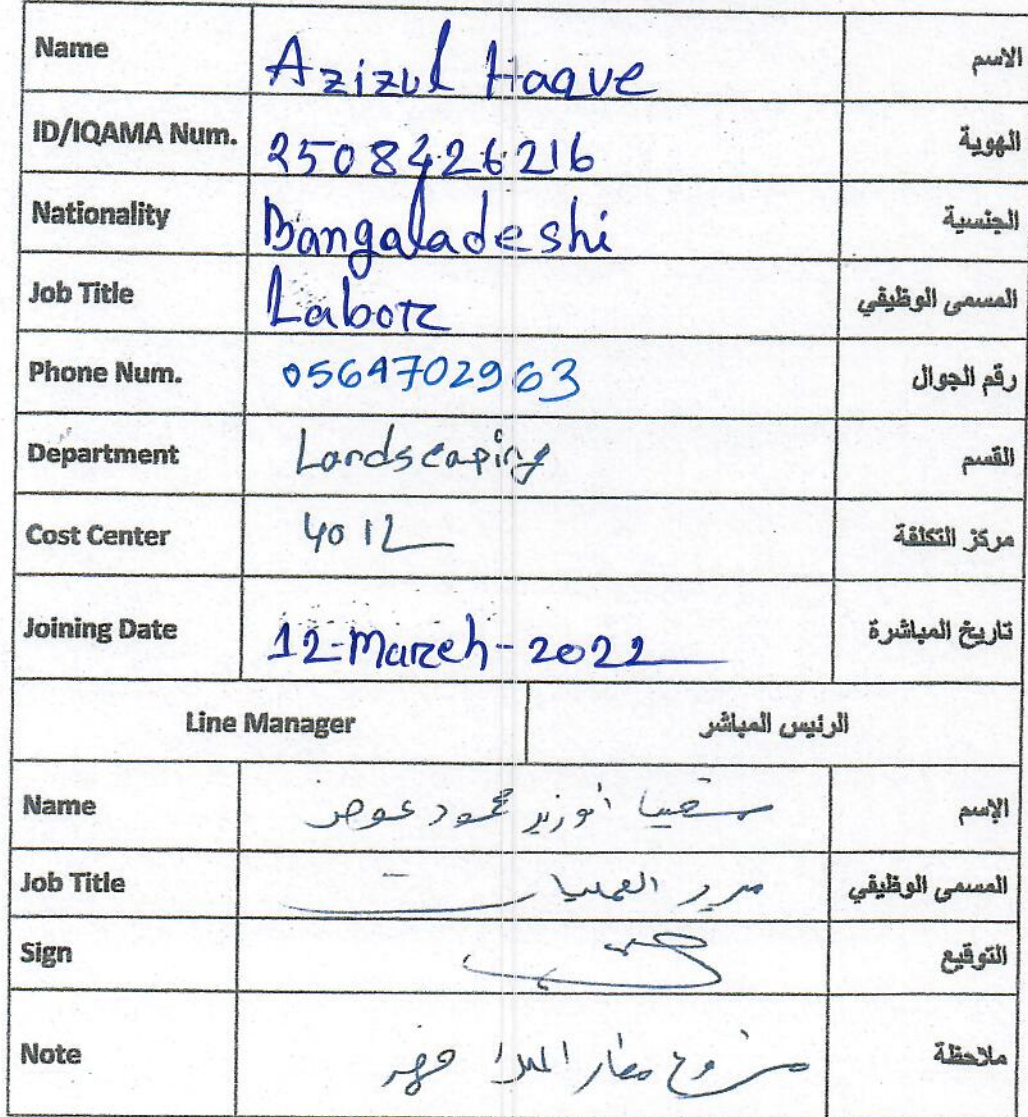 Name Azizul Haque الاسم
ID/IQAMA Num. 2508426216 الهوية
Nationality Bangaladeshi الجنسية
Job Title Labor المسمى الوظيفي
Phone Num. 0564702963 رقم الجوال
Department Landscaping القسم
Cost Center 4012 مركز التكلفة
Joining Date 12-March-2022 تاريخ المباشرة
Line Manager الرئيس المباشر
Name محمود عوض الإسم
Job Title مدير العمليات المسمى الوظيفي
Sign التوقيع
Note مشروع مطار الملك فهد ملاحظة